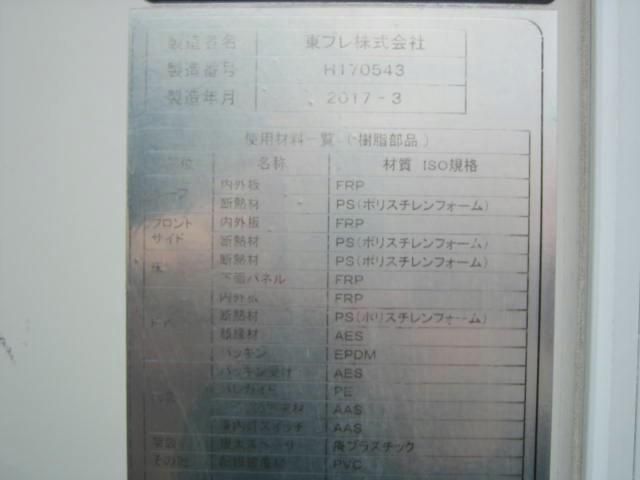 製造者名 東プレ株式会社
製造番号 H170543
製造年月 2017-3
使用材料一覧(樹脂部品)
部位 名称 材質 ISO規格
ルーフ 内外板 FRP
断熱材 PS(ポリスチレンフォーム)
フロント 内外板 FRP
サイド 断熱材 PS(ポリスチレンフォーム)
床 断熱材 PS(ポリスチレンフォーム)
下面パネル FRP
内外板 FRP
断熱材 PS(ポリスチレンフォーム)
AES
パッキン EPDM
パッキン受け AES
PE
AAS
庫内灯スイッチ AAS
廃プラスチック
その他 PVC